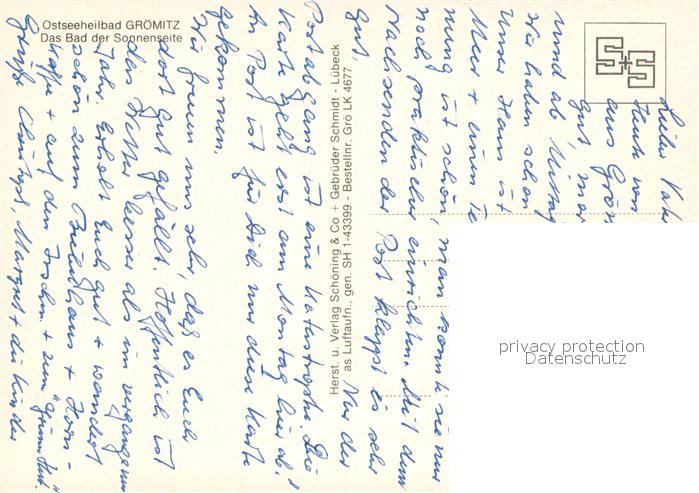 Ostseeheilbad GRÖMITZ
Das Bad der Sonnenseite
Herst. u. Verlag Schöning & Co + Gebrüder Schmidt - Lübeck
as Luftaufn., gen. SH 1-43399 - Bestellnr. Grö LK 4677
S+S
Lieber Vate
Heute von
aus Gröm
gut, nur
und ab Mittag
Wir haben schon
Unser Haus ist
Meer + einen Te
nung ist schön, man könnte sie nur
noch praktischer einrichten. Mit dem
Nachsenden der Post klappt es sehr
gut. Nur der
Postabgang ist eine Katastrophe. Die
Karte geht erst am Montag hier ab.
An Post ist für Dich nur diese Karte
gekommen.
Wir freuen uns sehr, daß es Euch
dort gut gefällt. Hoffentlich ist
das Wetter besser als im vergangenen
Jahr. Erholt Euch gut + wandert
schön zum + Horn-
+ auf den + zum "
Grüße Margret + die Kinder
privacy protection
Datenschutz